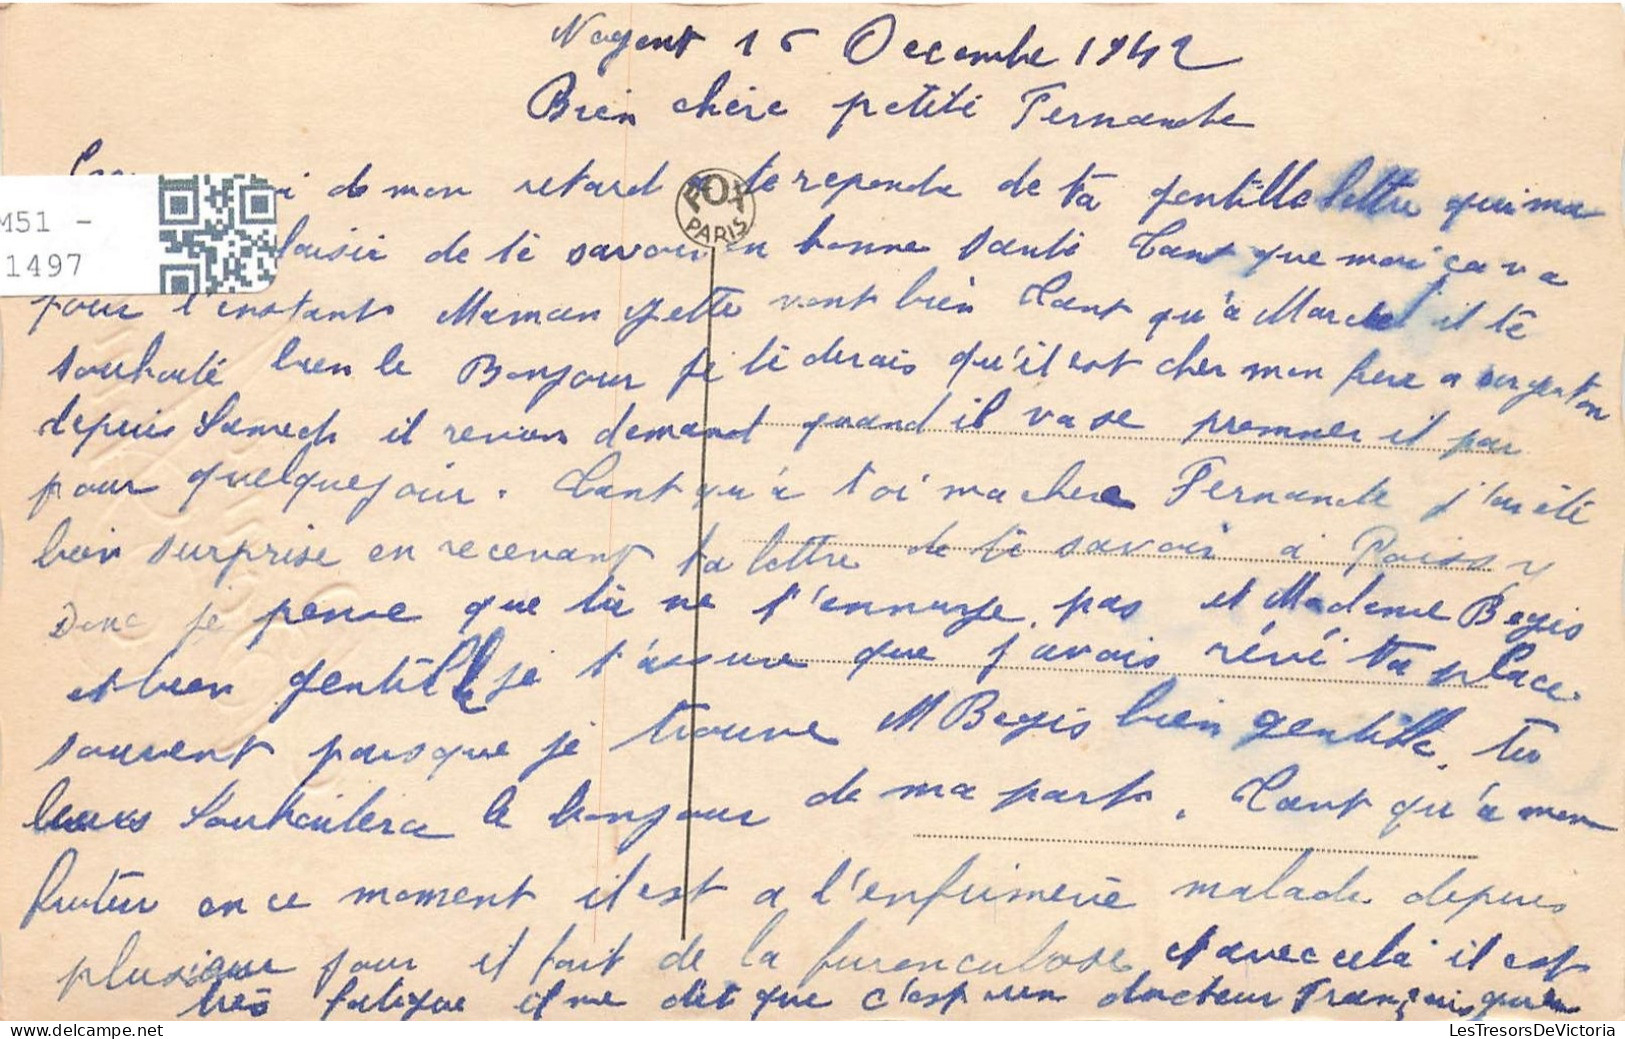 Nogent 16 Decembre 1942
Bien chère petite Fernande
de mon retard a te reponde de ta gentille lettre qui ma
FOX PARIS
M51 -
1497
laisir de te savoir en bonne santé Tant que moi ça va
pour l'instant Maman yette vont bien Tant qu'a Marcel il te
souhaite bien le Bonjour je te derais qu'il est cher mon frere a argenton
depuis Samedi il revien demand quand il va se promner il par
pour quelque jour. Tant qu'a toi ma chere Fernande j'ai été
bien surprise en recevant ta lettre de te savoir a Poissy
Donc je pense que tu ne t'ennuye pas et Madame Begis
et bien gentille je t'assure que j'avais révé ta place
souvent puisque je trouve M Begis bien gentille, tu
leurs Souhaitera le bonjour de ma part. Tant qu'a mon
en ce moment il est a l'enfrimerie malade depuis
plusieur jour il fait de la furonculose et avec cela il est
très fatigue il me dit que c'est un docteur Français qu'en
LesTresorsDeVictoria.com